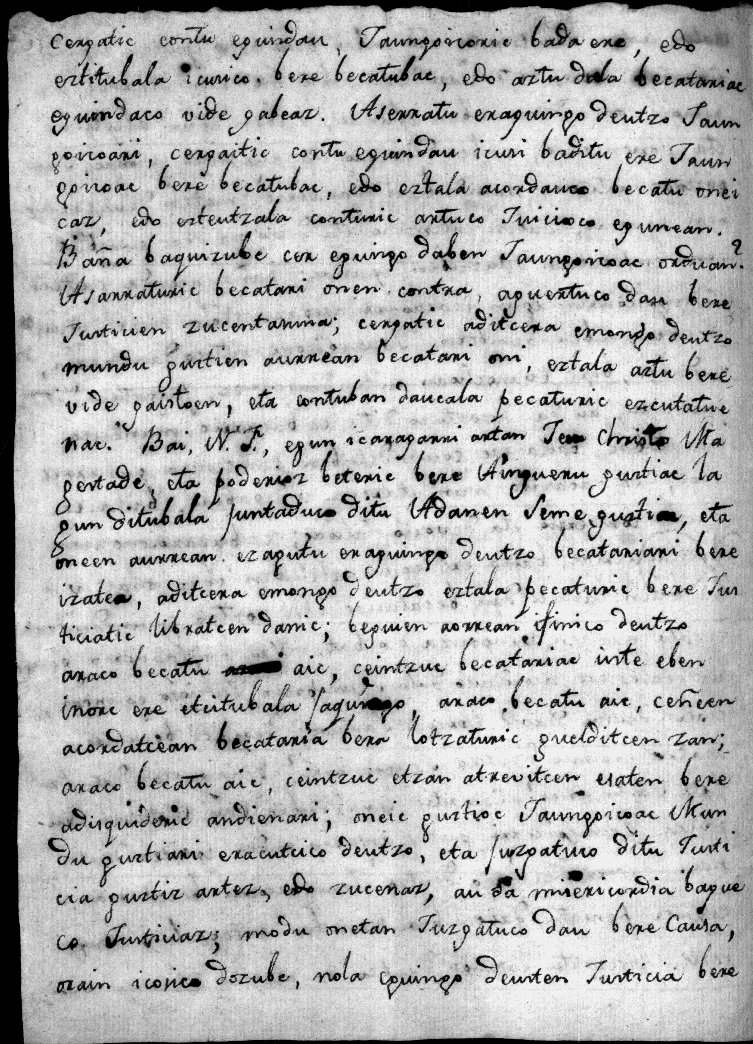 cergatic contu eguindau, Taungoicoric bada ere, edo
eztitubala icusico bere becatubac, edo artu dala becatariac
eguindaco vide gabeaz. Aserratu eraguingo deutzo Jaun
goicoari, cergaitic contu eguindau icusi baditu ere Jaun
goicoac bere becatubac, edo eztala acordauco becatu onei
caz, edo ezteutzala conturic artuco Juicioco egunean.
Baña baquizube cer eguingo daben Jaungoicoac orduan?
Asarraturic becatari onen contra, aguertuco dau bere
Justicien zucentasuna; cergatic aditcera emongo deutzo
mundu gustien aurrean becatari oni, eztala artu bere
vide gaistoen, eta contuban daucala pecaturic ezcutatue
nac. Bai, N. F., egun icaragarri artan Jesu Christo Ma
gestade, eta poderioz beteric bere Aingueru gustiac la
gun ditubala juntaduco ditu Adanen seme gustiac, eta
oneen aurrean ezagutu eraguingo deutzo becatariari bere
izatea, aditcera emongo deutzo eztala pecaturic bere Jus
ticiatic libratcen danic; beguien aorrean ifinico deutzo
araco becatu aic, ceintzuc becatariac uste eben
inorc ere etcitubala jaquingo, araco becatu aic, ceñeen
acordatcean becataria bera lotzaturic guelditcen zan;
araco becatu aic, ceintzuc etzan atrevitcen esaten bere
adisquideric andienari; oneic gustioc Jaungoicoac Mun
du gustiari eracutcico deutzo, eta juzgatuco ditu Justi
cia gustiz artez, edo zucenaz, au da misericordia bague
co Justiciaz; modu onetan Juzgatuco dau bere Causa,
orain icosico dozube, nola eguingo deusten Justicia bere